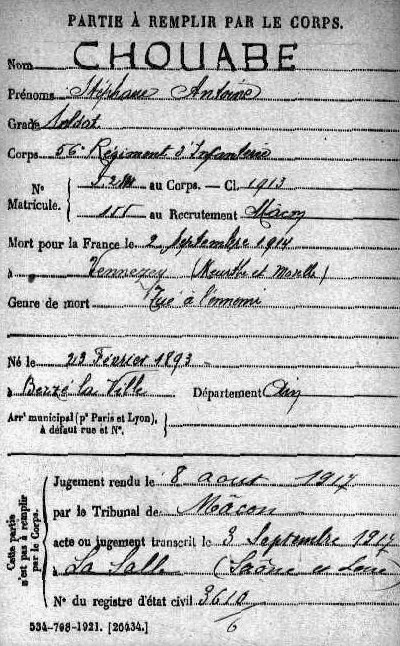 PARTIE À REMPLIR PAR LE CORPS.
Nom CHOUABE
Prénoms Stéphane Antoine
Grade Soldat
Corps 56e Régiment d'Infanterie
N° Matricule. { au Corps. — Cl. 1913
155 au Recrutement Mâcon
Mort pour la France le 2 Septembre 1914
à Vennezey (Meurthe et Moselle)
Genre de mort Tué à l'ennemi
Né le 23 Février 1893
à Berzé la Ville Département Ain
Arrt municipal (pr Paris et Lyon), à défaut rue et N°. }
Cette partie n'est pas à remplir par le Corps.
Jugement rendu le 8 aout 1917
par le Tribunal de Mâcon
acte ou jugement transcrit le 3 Septembre 1917
à La Salle (Saône et Loire)
N° du registre d'état civil 3610/6
534-708-1921. [26434.]